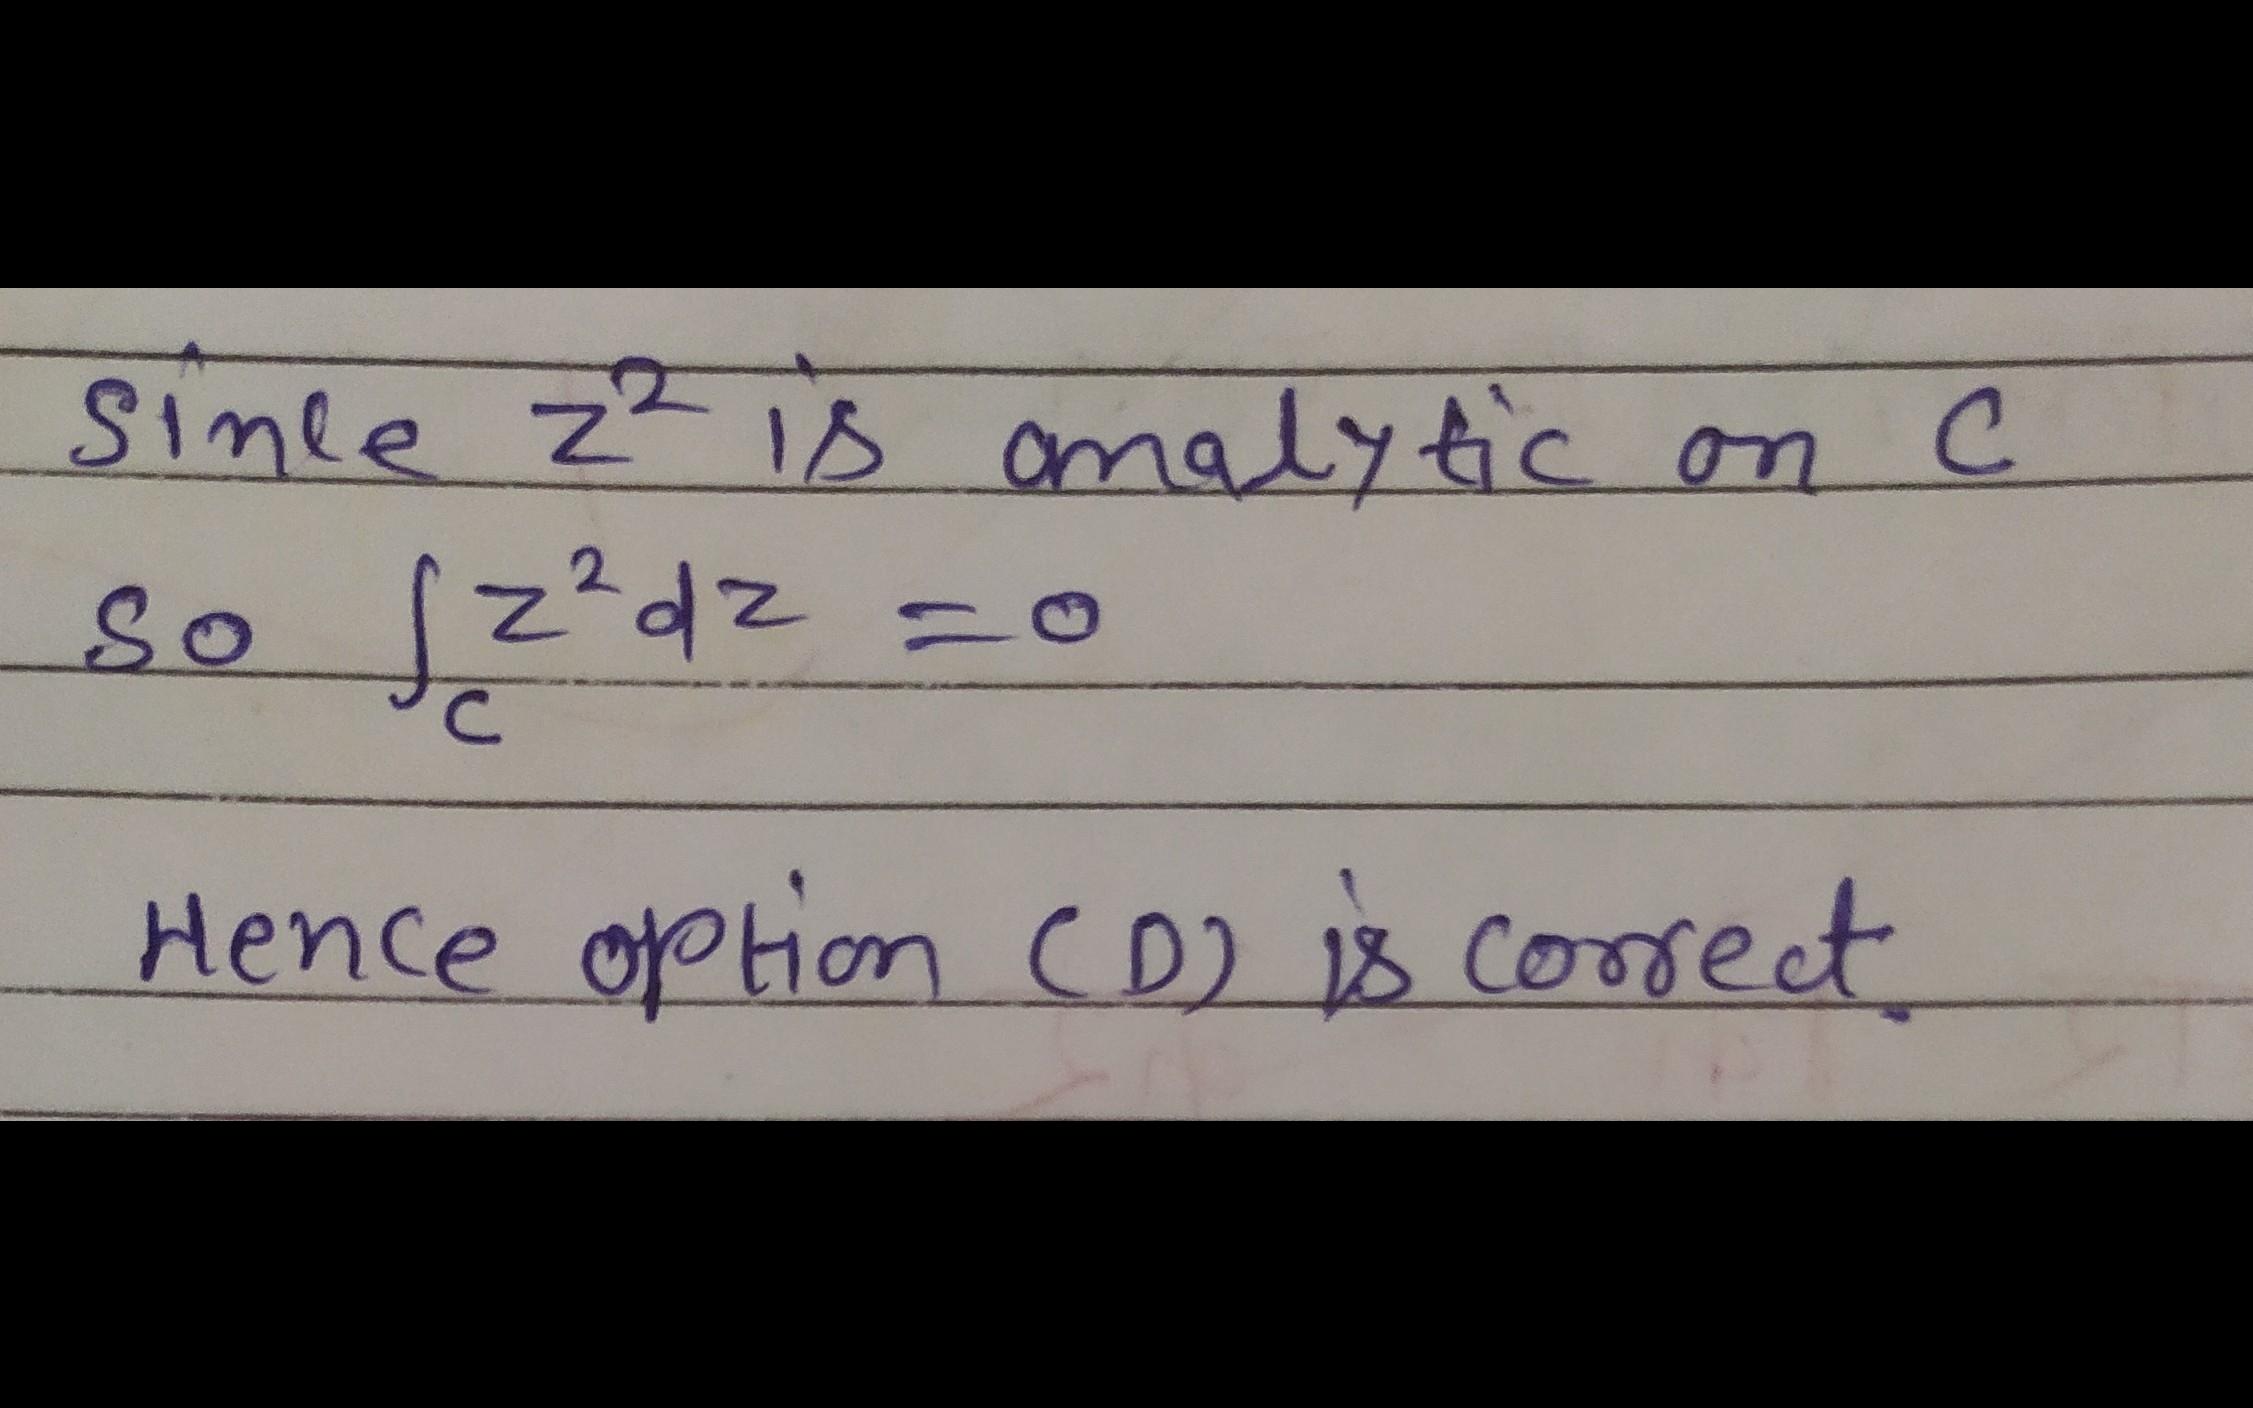 Since z² is analytic on C
So ∫_C z² dz = 0
Hence option (D) is correct.